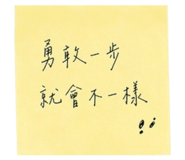 勇敢一步
就會不一樣
!!